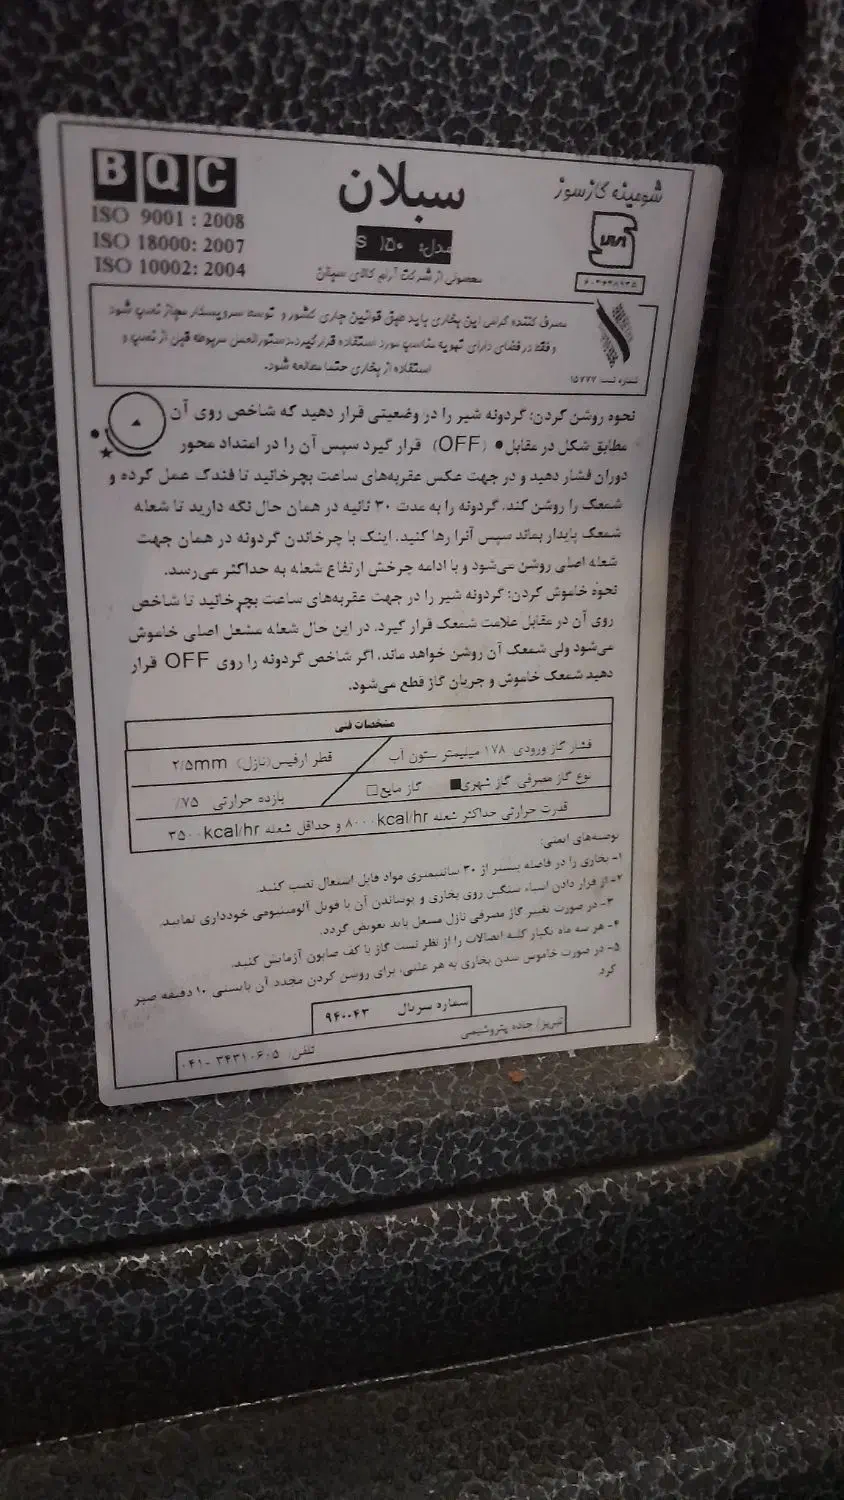 BQC
ISO 9001 : 2008
ISO 18000: 2007
ISO 10002: 2004
سبلان
مدل: S ۱۵۰
محصولی از شرکت آرام کالای سبلان
شومینه گازسوز
شماره ثبت ۱۵۷۷۷
مصرف کننده گرامی این بخاری باید طبق قوانین جاری کشور و توسط سرویسکار مجاز نصب شود
و فقط در فضای دارای تهویه مناسب مورد استفاده قرار گیرد. دستورالعمل مربوطه قبل از نصب و
استفاده از بخاری حتما مطالعه شود.
نحوه روشن کردن: گردونه شیر را در وضعیتی قرار دهید که شاخص روی آن
مطابق شکل در مقابل ● (OFF) قرار گیرد سپس آن را در امتداد محور
دوران فشار دهید و در جهت عکس عقربه‌های ساعت بچرخانید تا فندک عمل کرده و
شمعک را روشن کند. گردونه را به مدت ۳۰ ثانیه در همان حال نگه دارید تا شعله
شمعک پایدار بماند سپس آنرا رها کنید. اینک با چرخاندن گردونه در همان جهت
شعله اصلی روشن می‌شود و با ادامه چرخش ارتفاع شعله به حداکثر می‌رسد.
نحوه خاموش کردن: گردونه شیر را در جهت عقربه‌های ساعت بچرخانید تا شاخص
روی آن در مقابل علامت شمعک قرار گیرد. در این حال شعله مشعل اصلی خاموش
می‌شود ولی شمعک آن روشن خواهد ماند. اگر شاخص گردونه را روی OFF قرار
دهید شمعک خاموش و جریان گاز قطع می‌شود.
مشخصات فنی
فشار گاز ورودی ۱۷۸ میلیمتر ستون آب
قطر ارفیس(نازل) ۲/۵mm
نوع گاز مصرفی گاز شهری■ گاز مایع□
بازده حرارتی ۷۵٪
قدرت حرارتی حداکثر شعله ۸۰۰۰kcal/hr و حداقل شعله ۳۵۰۰kcal/hr
توصیه‌های ایمنی:
۱- بخاری را در فاصله بیشتر از ۳۰ سانتیمتری مواد قابل اشتعال نصب کنید.
۲- از قرار دادن اشیاء سنگین روی بخاری و پوشاندن آن با فویل آلومینیومی خودداری نمایید.
۳- در صورت تغییر گاز مصرفی نازل مشعل باید تعویض گردد.
۴- هر سه ماه یکبار کلیه اتصالات را از نظر نشت گاز با کف صابون آزمایش کنید.
۵- در صورت خاموش شدن بخاری به هر علتی، برای روشن کردن مجدد آن بایستی ۱۰ دقیقه صبر
کرد.
شماره سریال ۹۴۰۰۴۳
تبریز/ جاده پتروشیمی
تلفن: ۳۴۳۱۰۶۰۵ -۰۴۱